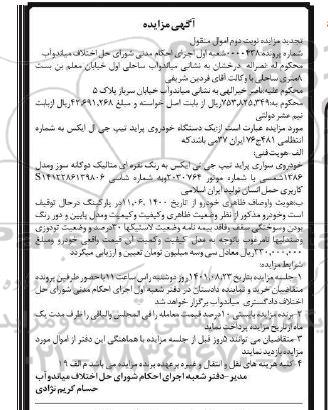 آگهی مزایده
تجدید مزایده نوبت دوم اموال منقول
شماره پرونده ۰۰۰۰۴۳۸ شعبه اول اجرای احکام مدنی شورای حل اختلاف میاندوآب
محکوم له نصراله درخشان به نشانی میاندوآب ساحلی اول خیابان معلم بن بست
۸ متری ساحلی با وکالت آقای فردین شریفی
محکوم علیه ناصر خیرالهی به نشانی میاندوآب خیابان سرباز پلاک ۵
محکوم به: ۲۵۳,۸۲۵,۳۴۹ ریال از بابت اصل خواسته و مبلغ ۴۲,۶۹۱,۲۶۸ ریال از بابت
نیم عشر دولتی
مورد مزایده عبارت است از: یک دستگاه خودروی پراید تیپ جی ال ایکس به شماره
انتظامی ۴۸۱ج۷۶ ایران ۳۷ می باشد که
الف-هویت فنی:
خودروی سواری پراید تیپ جی تی ایکس به رنگ نقره ای متالیک دوگانه سوز ومدل
۱۳۸۶شمسی با شماره موتور ۲۰۳۰۷۶۴ وبه شماره شاسی S۱۴۱۲۲۸۶۱۳۹۸۰۶
کاربری حمل انسان تولید ایران اسلامی
ب-هویت واوصاف ظاهری خودرو از تاریخ ۱۱,۰۶,۱۴۰۰ در پارکینگ درحال توقیف
است وخودرو مذکور از نظر وضعیت ظاهری وکیفیت وکمیت ومدل پایین و دور رنگ
بودن وسوختگی سقف وفاقد بیمه نامه وضعیت لاستیکها ۳۰درصد و وضعیت تودوزی
وصندلیها نامرغوب باتوجه به مدل کیفیت وکمیت آن قیمت واقعی خودرو ومبلغ
۲۳۰,۰۰۰,۰۰۰ ریال معادل سی وسه میلیون تومان تعیین و ارزیابی میگردد
شرایط مزایده:
۱-جلسه مزایده بتاریخ ۱۴۰۱,۰۸,۲۳ روز دوشنبه راس ساعت ۱۱ باحضور طرفین پرونده
متقاضیان خرید و نماینده دادستان در دفتر شعبه اول اجرای احکام مدنی شورای حل
اختلاف دادگستری میاندوآب برگزار خواهد شد
۲-برنده مزایده بایستی ۱۰درصد قیمت معامله را فی المجلس والباقی را ظرف مدت یک
ماه از تاریخ مزایده پرداخت نماید
۳-متقاضیان می توانند ۵روز قبل از جلسه مزایده با هماهنگی این دفتر از اموال مورد
مزایده بازدید نمایند
۴-کلیه هزینه های نقل و انتقال و غیره برعهده برنده مزایده می باشد م الف ۱۹
مدیر-دفتر شعبه اجرای احکام شورای حل اختلاف میاندوآب
حسام کریم نژادی